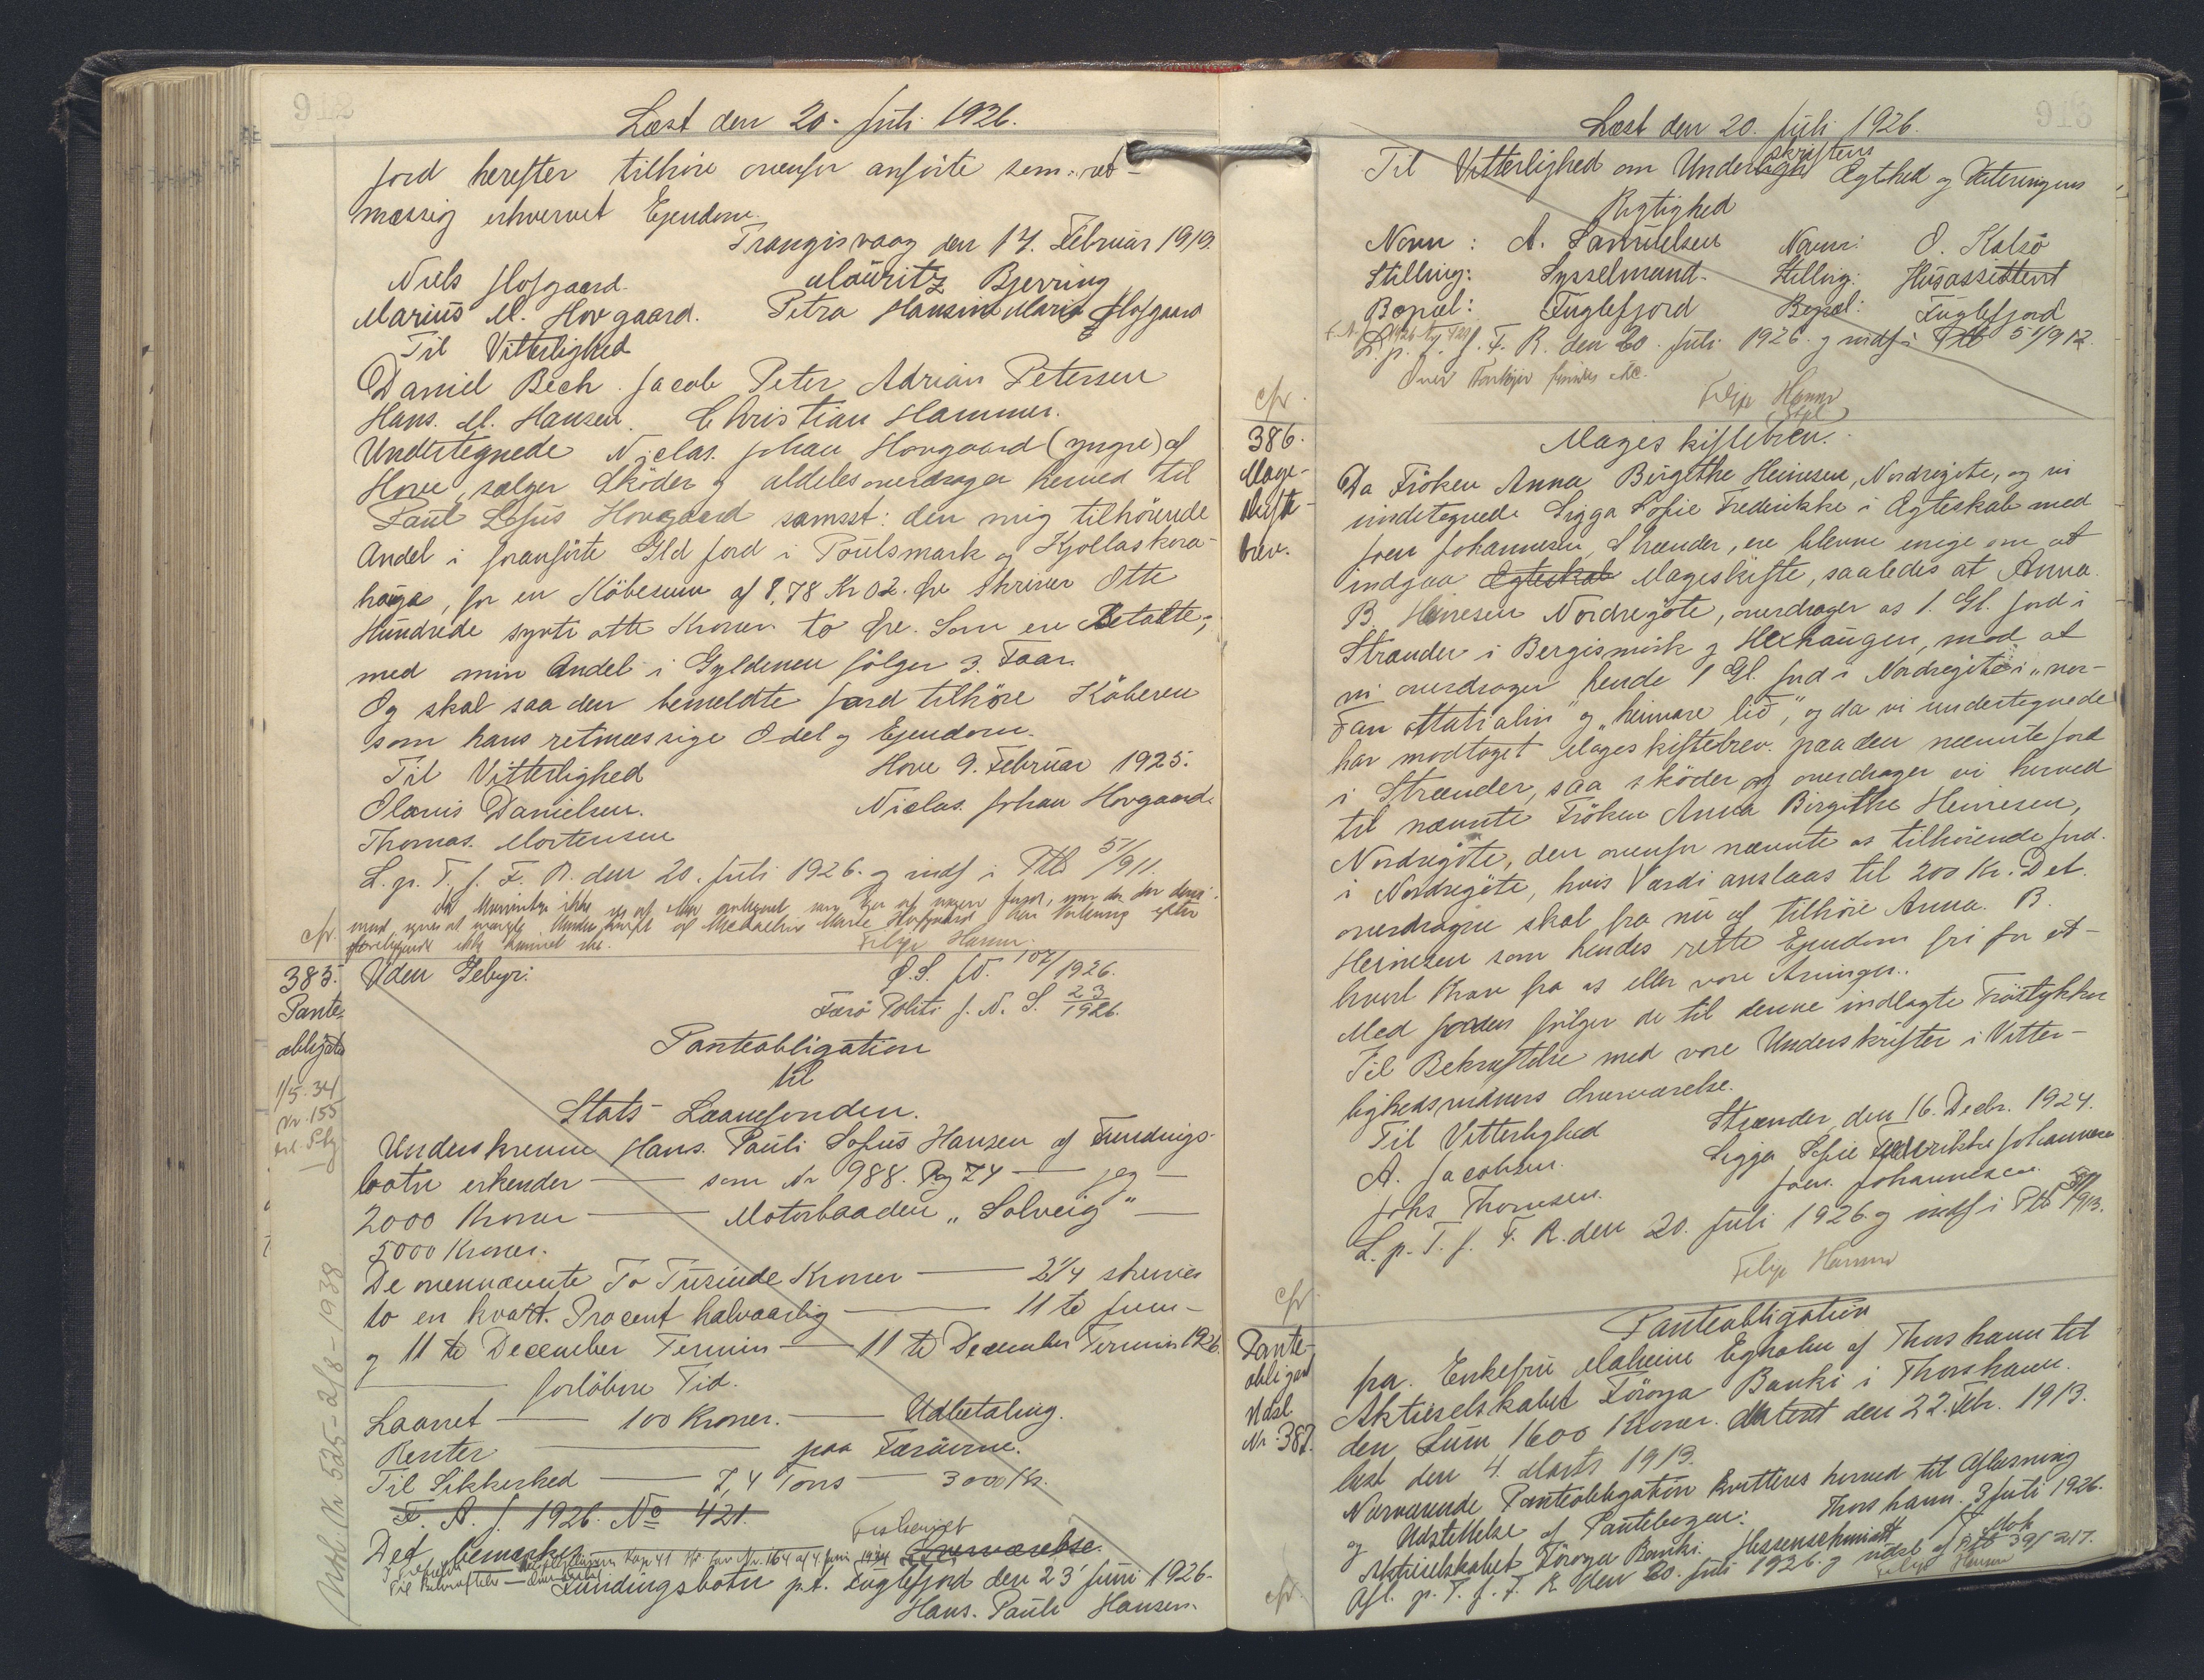 912
Læst den 20. Juli 1926.
Jord herefter tilhöre ovenfor anförte som ret-
mæssig erhvervet Ejendom.
Trangisvaag den 14. Februar 1919.
Niels Hofgaard. Mouritz Bjerring
Marius M. Hovgaard. Petra Hansine Maria Hofgaard
Til Vitterlighed
Daniel Bech. Jacob Peter Adrian Petersen
Hans. M. Hansen. Christian Hammer.
Undertegnede Niclas. Johan Hovgaard (yngre) af
Hove, sælger Sköder og aldeles overdrager herved til
Paul Sofus Hovgaard samsst: den mig tilhörende
Andel i foranförte Gld Jord i Poulsmark og Kjollaskora-
hauga, for en Köbesum af 8,78 Kr 02. Øre skriver Otte
Hundrede syvti otte Kroner to Øre. Som er Betalte;
med min Andel i Gyldenen fölger 3. Faar.
Og skal saa den bemeldte Jord tilhöre Köberen
som hans retmæssige Odel og Ejendom.
Til Vitterlighed Hove 9. Februar 1925.
Olavus Danielsen. Niclas. Johan Hovgaard.
Thomas. Mortensen
L. p. T. f. F. R. den 20. Juli 1926. og indf i Ptb 51/911.
cfr.
Filip Hammer.
385. Uden Gebyr: Ø.S. fv. 107/1926.
Pante- Færö Politi J. N. S. 23/1926.
obligati
Panteobligation
1/5.34 til
Nr. 155 Stats-Laanefonden.
Underskrevne Hans. Pauli Sofus Hansen af Fundings-
botn erkender — som Nr 988. Pag 74 — jeg —
2000 Kroner — Motorbaaden "Solveig" —
5000 Kroner.
De ovennævnte To Tusinde Kroner — 2¼ skriver
to en kvart. Procent halvaarlig — 11 te Juni-
og 11 te December Termin — 11 te December Termin 1926.
— forløbne Tid.
Laanet — 100 Kroner. — Udbetaling.
Renter — paa Færöerne.
Til Sikkerhed — 7,4 Tons — 3000 Kr.
F. A. f. 1926. No 421.
Det bemærkes Overværelse.
Fundingsbotn p.t. Fuglefjord den 23 Juni 1926.
Hans. Pauli Hansen.
Nr. 525 - 2/8 - 1938
913
Læst den 20. Juli 1926.
Til Vitterlighed om Underskriftens Ægthed og Dateringens
Rigtighed
Navn: A. Samuelsen Navn: O. Kalsö
Stilling: Sysselmand. Stilling: Husassistent
Bopæl: Fuglefjord Bopæl: Fuglefjord
L. p. T. f. F. R. den 20. Juli 1926. og indf i Ptb 51/912.
cfr. Filip Hammer
386. Mageskiftebrev.
Mage-
skifte-
brev.
Da Fröken Anna Birgithe Heinesen, Nordregöte, og vi
undertegnede Sigga Sofie Frederikke i Ægteskab med
Joen Johannesen, Strænder, ere blevne enige om at
indgaa Ægteskab Mageskifte, saaledes at Anna.
B. Heinesen Nordregöte, overdrager os 1. Gl. Jord i
Strænder i Bergismörk og Hexhaugen, mod at
vi overdrager hende 1 Gl. Jord i Nordregöte i "nor-
Fan ottatialin" og "heimare lid", og da vi undertegnede
har modtaget Mageskiftebrev. paa den nævnte Jord
i Strænder, saa sköder og overdrager vi herved
til nævnte Fröken Anna Birgithe Heinesen,
Nordregöte, den ovenfor nævnte os tilhörende Jord.
i Nordregöte, hvis Værdi anslaas til 200 Kr. Det
overdragne skal fra nu af tilhöre Anna. B.
Heinesen som hendes rette Ejendom fri for et-
hvert Krav fra os eller vore Arvinger.
Med Jorden fölger de til denne indlagte Tröstykker
Til Bekræftelse med vore Underskrifter i Vitter-
lighedsvidners Overværelse.
Til Vitterlighed Strænder, den 16. Decbr. 1924.
A. Jacobsen. Sigga Sofie Frederikke Johannesen
Johs Thomsen. Joen. Johannesen.
L. p. T. f. F. R. den 20. Juli 1926. og indf i Ptb 51/913.
Filip Hammer
cfr.
Pante- Panteobligation
obligat
Udsl
Nr. 387.
fra. Enkefru Malene Egholm af Thorshavn til
Aktieselskabet Föroya Banki i Thorshavn.
den Sum 1600 Kroner. dateret den 22. Febr. 1913.
læst den 4. Marts 1913.
Nærværende Panteobligation kvitteres herved til Aflæsning
og Udslettelse af Pantebogen: Thorshavn. 3 Juli 1926.
Aktieselskabet Föroya Banki. Hessenschmidt
Afl. p. T. f. F. R. den 20. Juli 1926. og udsl af Ptb 39/217.
cfr. Filip Hammer